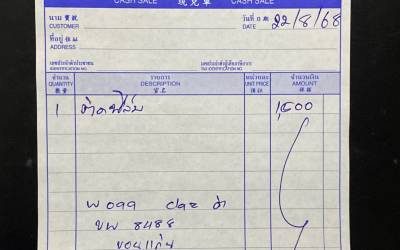 CASH SALE 現兌單 CASH SALE
นาม 寶號
CUSTOMER
วันที่ 日期
DATE 22/8/68
ที่อยู่ 住址
ADDRESS
เลขประจำตัวประชาชน
IDENTIFICATION NO.
เลขประจำตัวผู้เสียภาษีอากร
TAX IDENTIFICATION NO.
จำนวน รายการ หน่วยละ จำนวนเงิน
QUANTITY DESCRIPTION UNIT PRICE AMOUNT
數量 貨名 價錢 銀碼
1 ติดฟิล์ม 1,500
ขพ 8488
ขอนแก่น